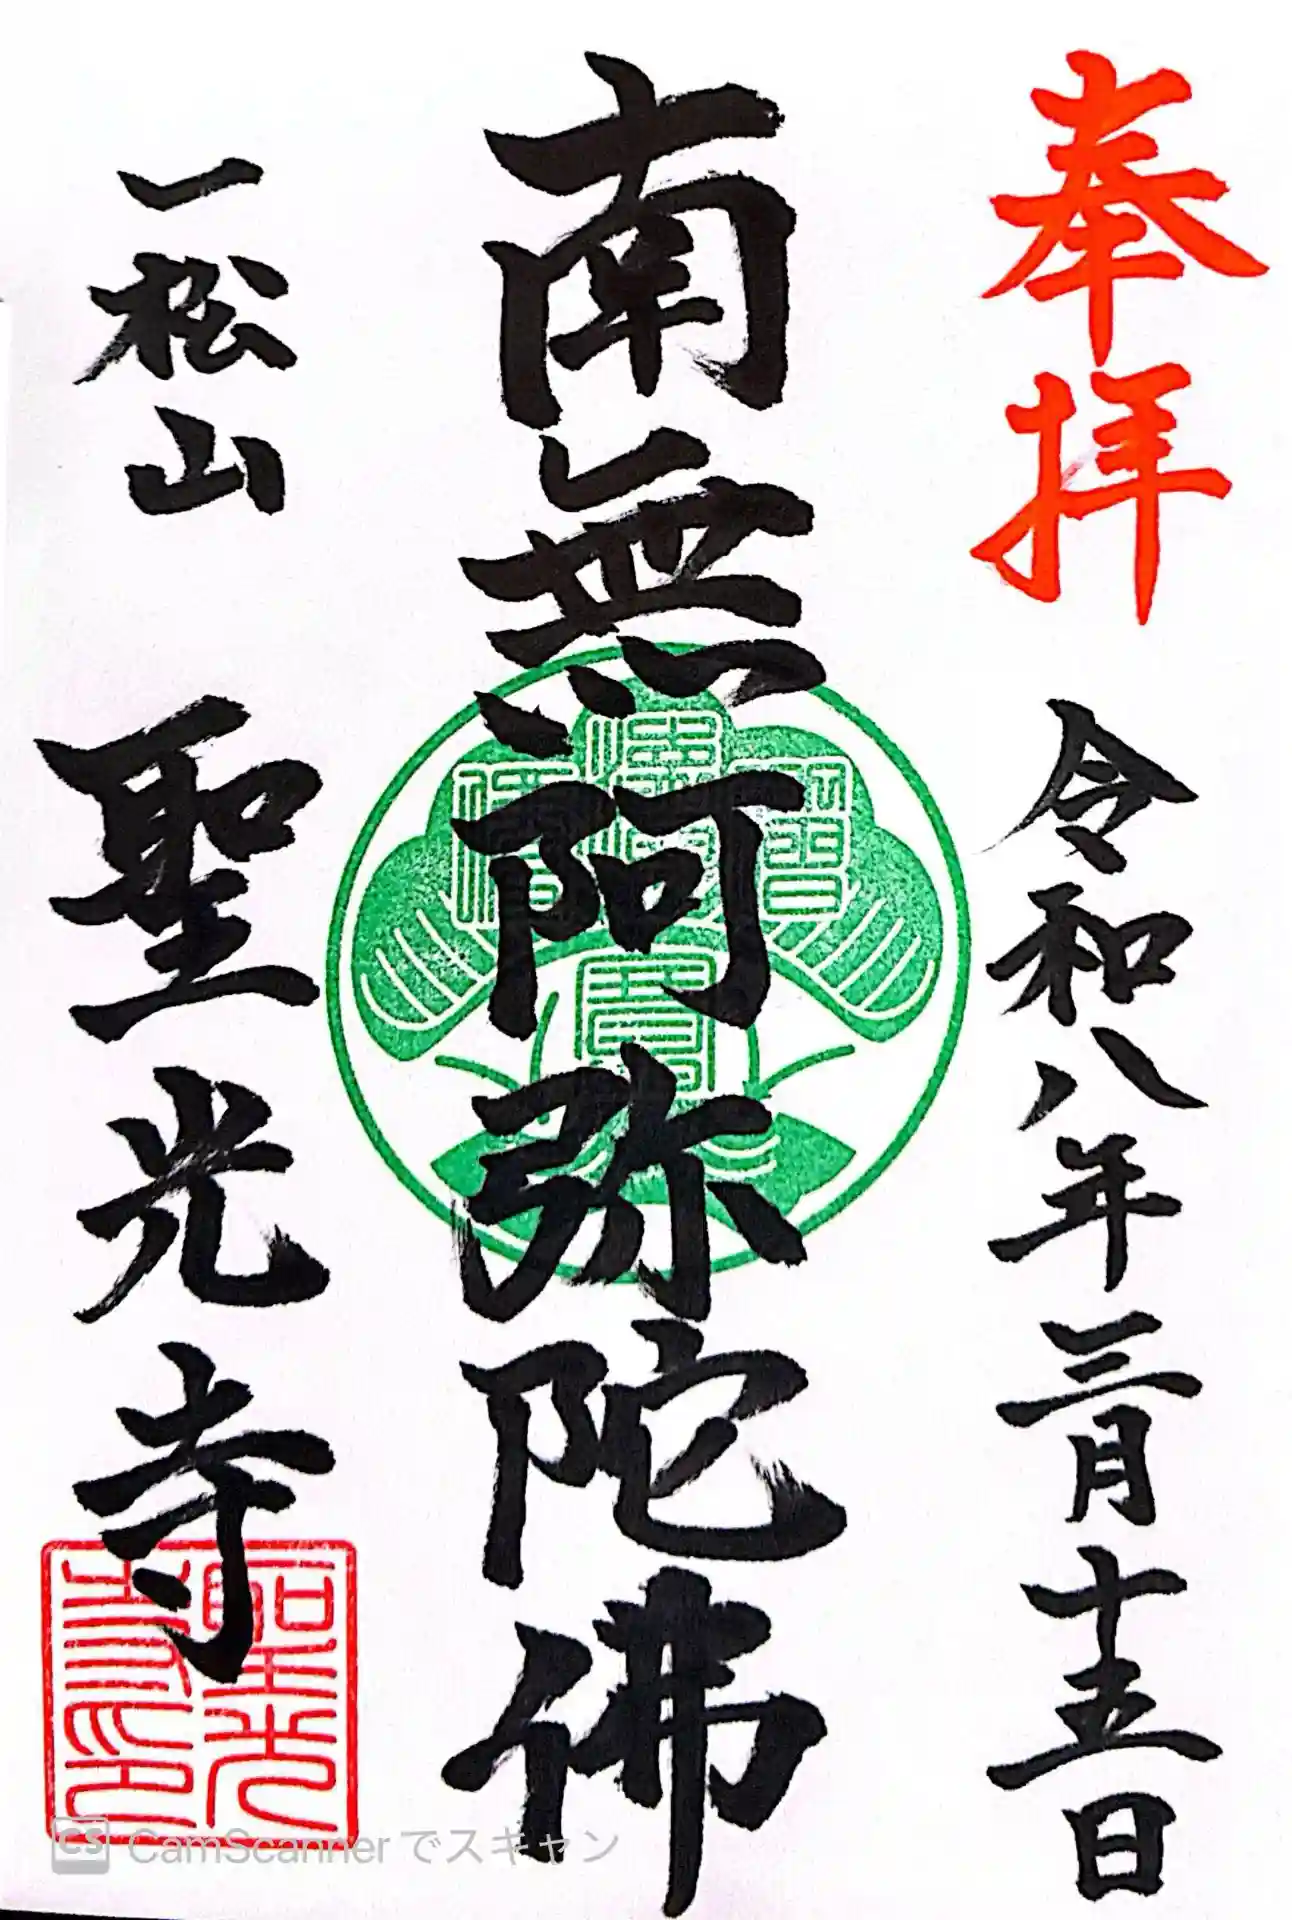 奉拝
令和八年三月十五日
南無阿弥陀佛
佛法僧寶
一松山
聖光寺
聖光寺印
CS CamScannerでスキャン